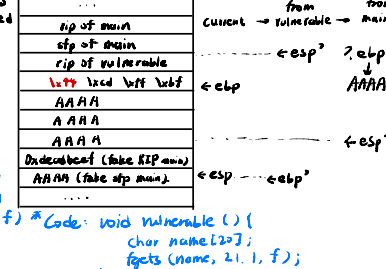 ...
rip of main
sfp of main
rip of vulnerable
\xff \xcd \xff \xbf
AAAA
AAAA
AAAA
0xdeadbeef (fake RIP main)
AAAA (fake sfp main)
....
from
current → vulnerable → main
← esp'
?. ebp
← ebp
AAAA
← esp'
← esp ← ebp'
f) * Code: void vulnerable () {
char name[20];
fgets (name, 21, f);